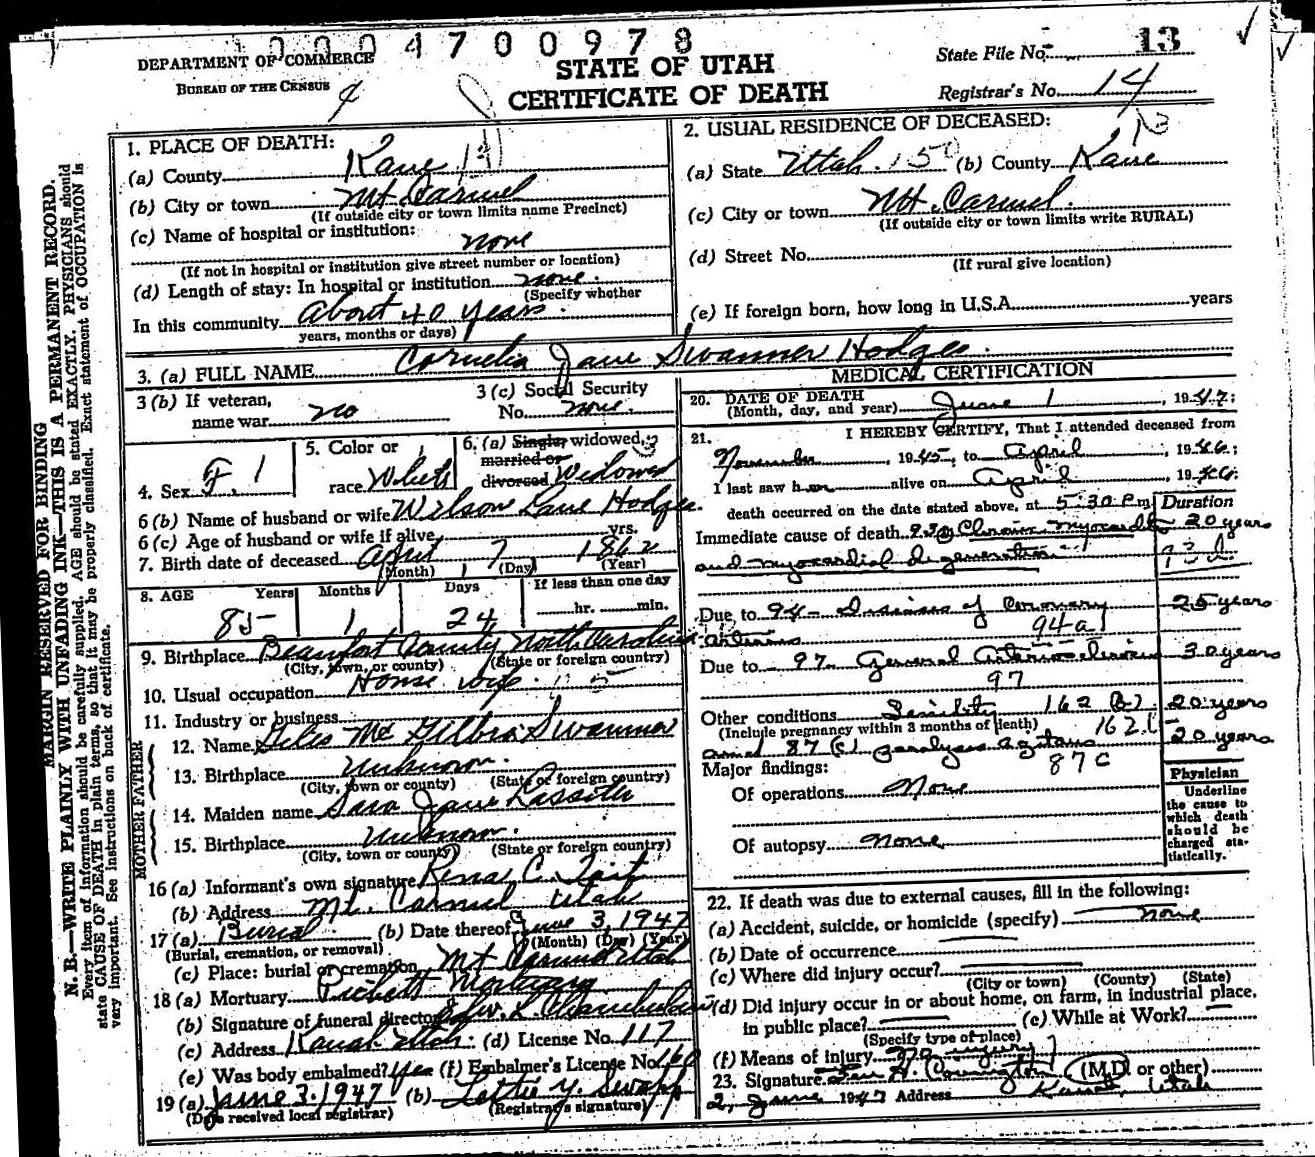 10004700978
DEPARTMENT OF COMMERCE
BUREAU OF THE CENSUS
STATE OF UTAH
CERTIFICATE OF DEATH
State File No. 13
Registrar's No. 14
1. PLACE OF DEATH:
(a) County Kane
(b) City or town Mt. Carmel
(If outside city or town limits name Precinct)
(c) Name of hospital or institution:
none
(If not in hospital or institution give street number or location)
(d) Length of stay: In hospital or institution none.
(Specify whether
In this community About 40 years.
years, months or days)
2. USUAL RESIDENCE OF DECEASED:
(a) State Utah. 150 (b) County Kane
(c) City or town Mt. Carmel.
(If outside city or town limits write RURAL)
(d) Street No.
(If rural give location)
(e) If foreign born, how long in U.S.A. years
3. (a) FULL NAME Cornelia Jane Swanner Hodges.
3 (b) If veteran,
name war no
3 (c) Social Security
No. none.
4. Sex F. 1
5. Color or
race White
6. (a) Single widowed,
married or
divorced Widowed
6 (b) Name of husband or wife Wilson Lane Hodges.
6 (c) Age of husband or wife if alive yrs.
7. Birth date of deceased April 7 1862
(Month) (Day) (Year)
8. AGE Years Months Days If less than one day
85 1 24 hr. min.
9. Birthplace Beaufort County North Carolina
(City, town, or county) (State or foreign country)
10. Usual occupation House wife
11. Industry or business
FATHER
12. Name Giles Mc Gilbra Swanner
13. Birthplace Unknown.
(City, town or county) (State or foreign country)
MOTHER
14. Maiden name Sara Jane Lassiter
15. Birthplace Unknown.
(City, town or county) (State or foreign country)
16 (a) Informant's own signature Rena C. Tait
(b) Address Mt. Carmel Utah
17 (a) Burial (b) Date thereof June 3, 1947
(Burial, cremation, or removal) (Month) (Day) (Year)
(c) Place: burial or cremation Mt Carmel Utah
18 (a) Mortuary Pickett Mortuary
(b) Signature of funeral director L. Chamberlain
(c) Address Kanab Utah. (d) License No. 117
(e) Was body embalmed? Yes (f) Embalmer's License No. 160
19 (a) June 3. 1947 (b) Lettie Y. Swapp
(Date received local registrar) (Registrar's signature)
MEDICAL CERTIFICATION
20. DATE OF DEATH
(Month, day, and year) June 1, 1947;
21. I HEREBY CERTIFY, That I attended deceased from
November, 1945, to April, 1946;
I last saw her alive on April, 1946;
death occurred on the date stated above, at 5:30 P.m.
Duration
Immediate cause of death 93 Chronic myocarditis 20 years
and myocardial degeneration
Due to 94 - Diseases of Coronary 25 years
arteries 94a
Due to 97 General Arteriosclerosis 30 years
97
Other conditions Senility 162 (b) 20 years
(Include pregnancy within 3 months of death) 162.
and 87 (c) paralysis agitans 20 years
87c
Major findings:
Of operations None
Of autopsy none
Physician
Underline
the cause to
which death
should be
charged sta-
tistically.
22. If death was due to external causes, fill in the following:
(a) Accident, suicide, or homicide (specify) none
(b) Date of occurrence
(c) Where did injury occur?
(City or town) (County) (State)
(d) Did injury occur in or about home, on farm, in industrial place,
in public place? (e) While at Work?
(Specify type of place)
(f) Means of injury no injury
23. Signature H. Covington (M.D. or other)
2, June 1947 Address Kanab, Utah
MARGIN RESERVED FOR BINDING
N. B.—WRITE PLAINLY WITH UNFADING INK—THIS IS A PERMANENT RECORD.
Every item of information should be carefully supplied. AGE should be stated EXACTLY. PHYSICIANS should
state CAUSE OF DEATH in plain terms, so that it may be properly classified. Exact statement of OCCUPATION is
very important. See instructions on back of certificate.